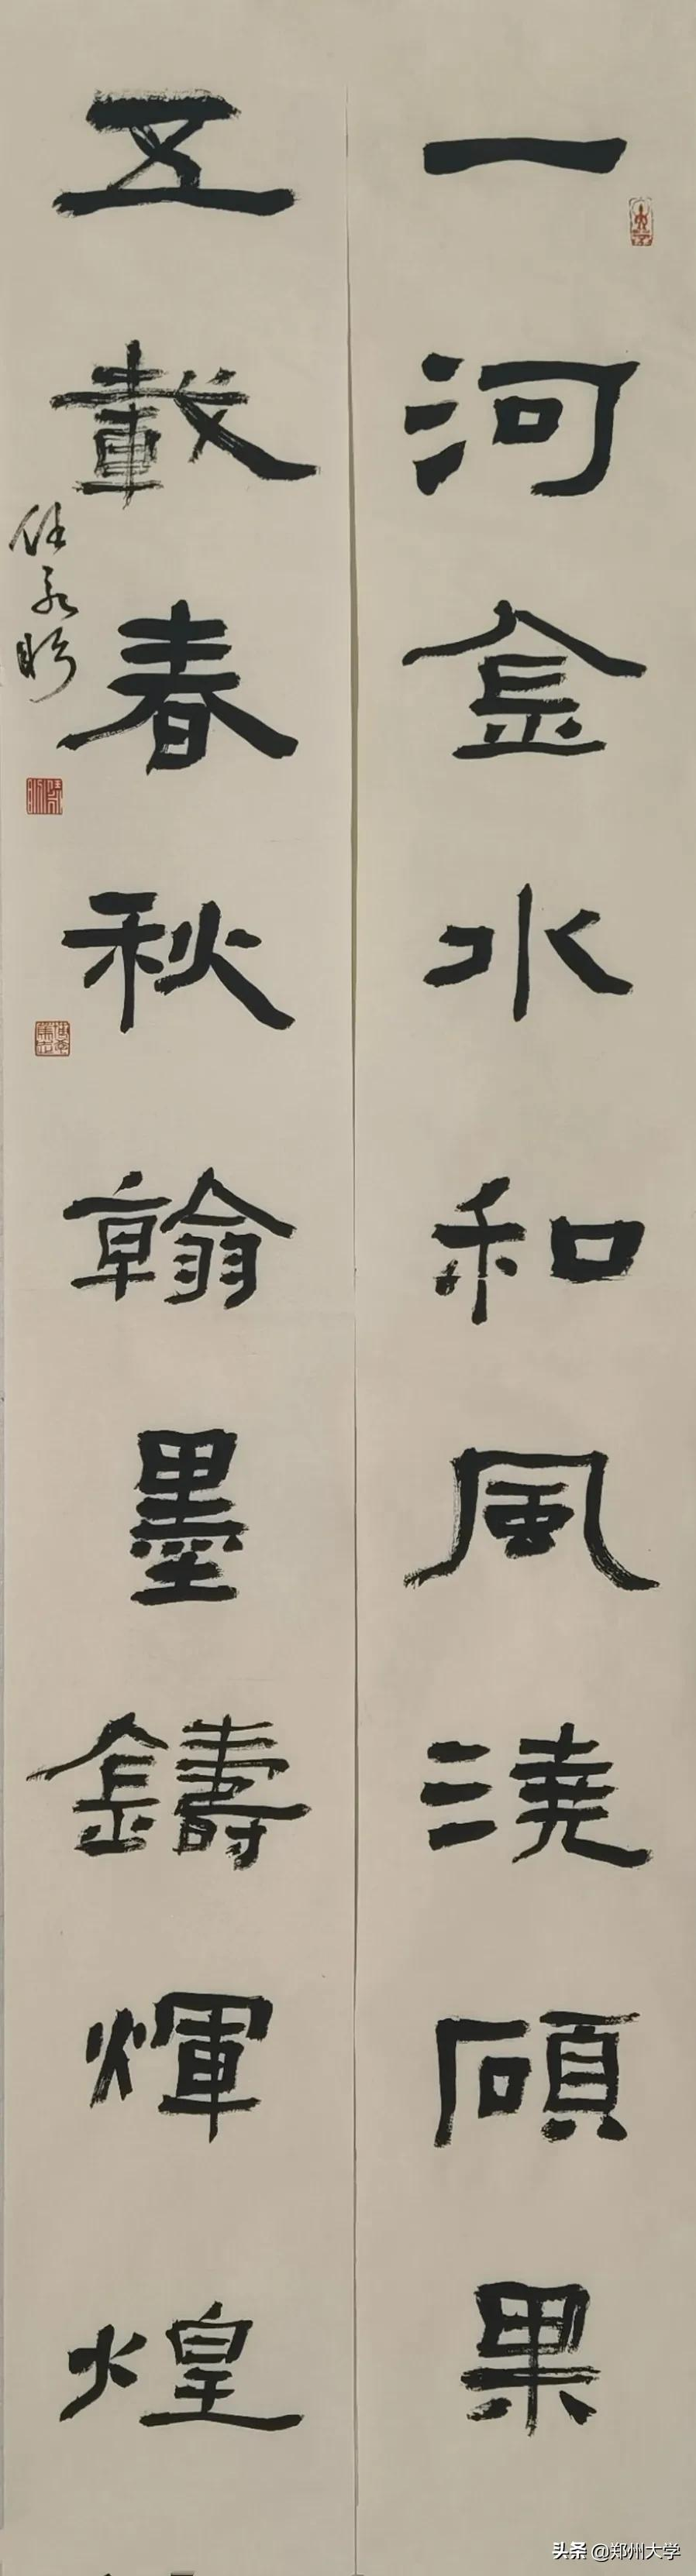 一河金水和風澆碩果
五載春秋翰墨鑄輝煌
头条 @郑州大学